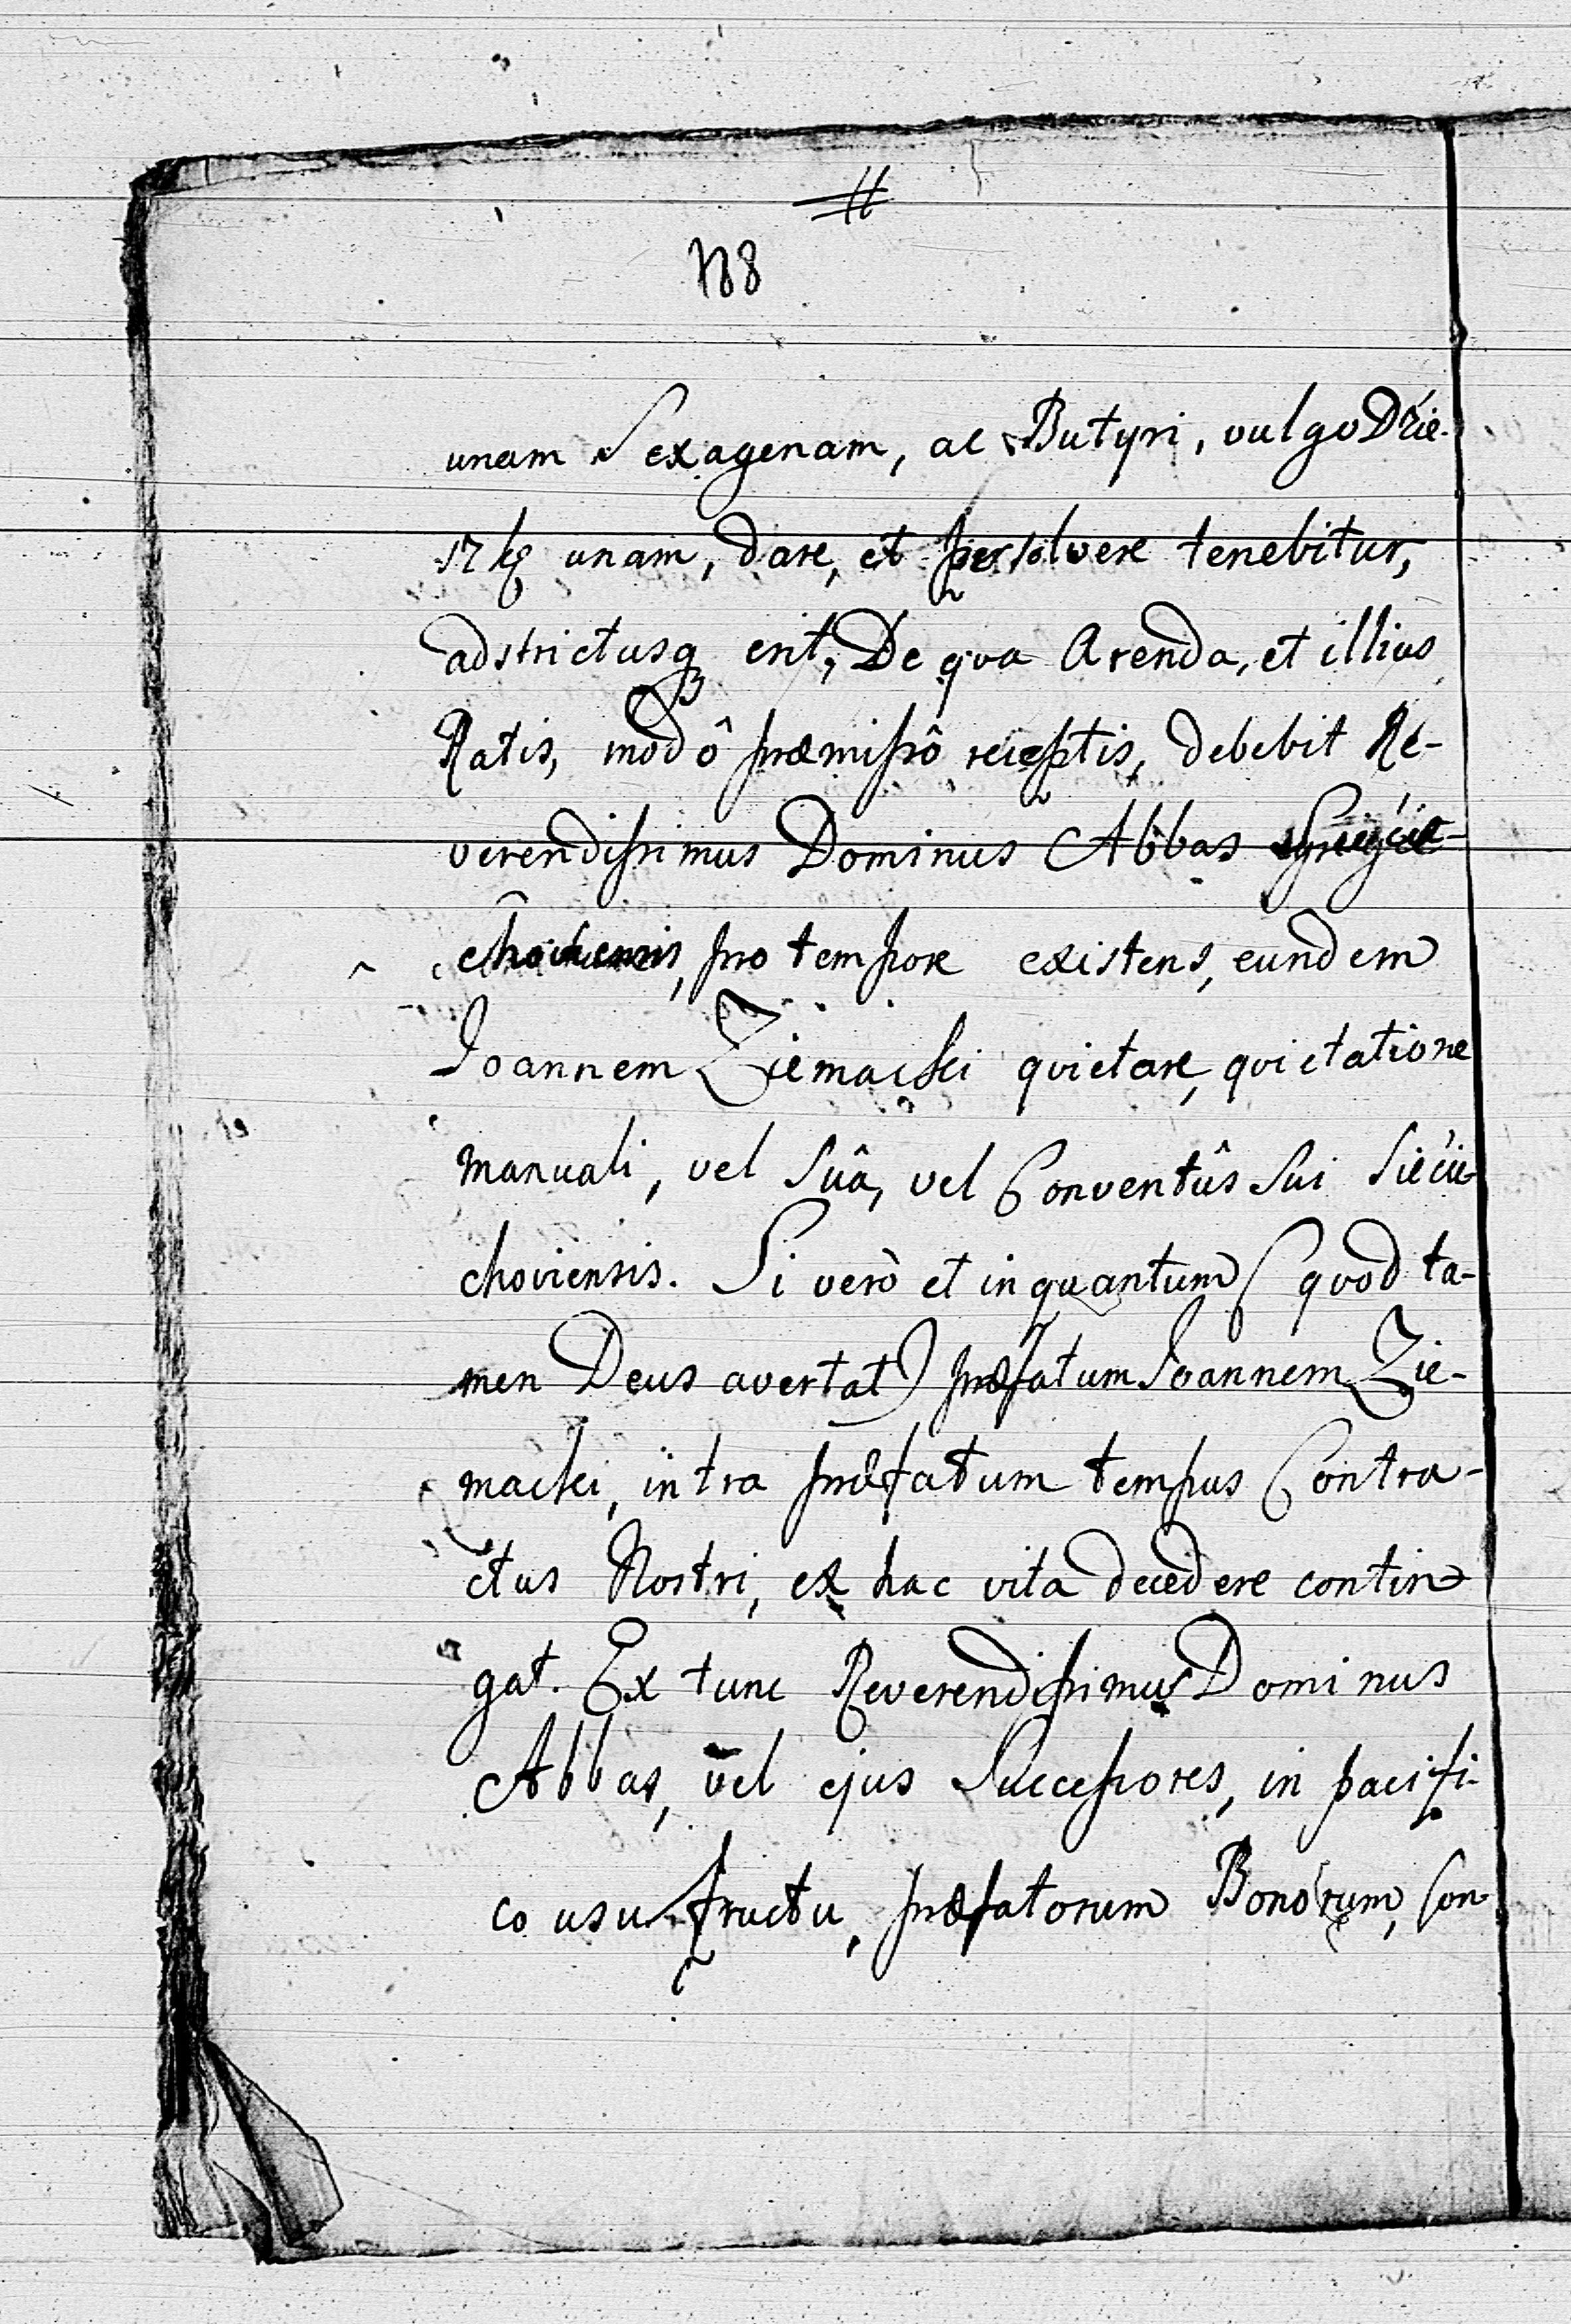 unam Sexagenam, ac Butyri, vulgo Dzie-
szkę unam, dare, et persolvere tenebitur,
adstrictusq erit, De qva Arenda, et illius
Ratis, modô præmissô receptis, debebit Re-
verendissimus Dominus Abbas
choviensis, pro tempore existens, eundem
Joannem Ziemacki qvietare, qvietatione
manuali, vel Suâ, vel Conventûs Sui Siecie-
choviensis. Si verò et inquantum (qvod ta-
men Deus avertat) præfatum Joannem Zie-
macki, intra præfatum tempus Contra-
ctus Nostri, ex hac vita decedere contin
gat. Ex tunc Reverendissimus Dominus
Abbas, vel ejus Successores, in pacifi-
co usu fructu, præfatorum Bonorum, con-